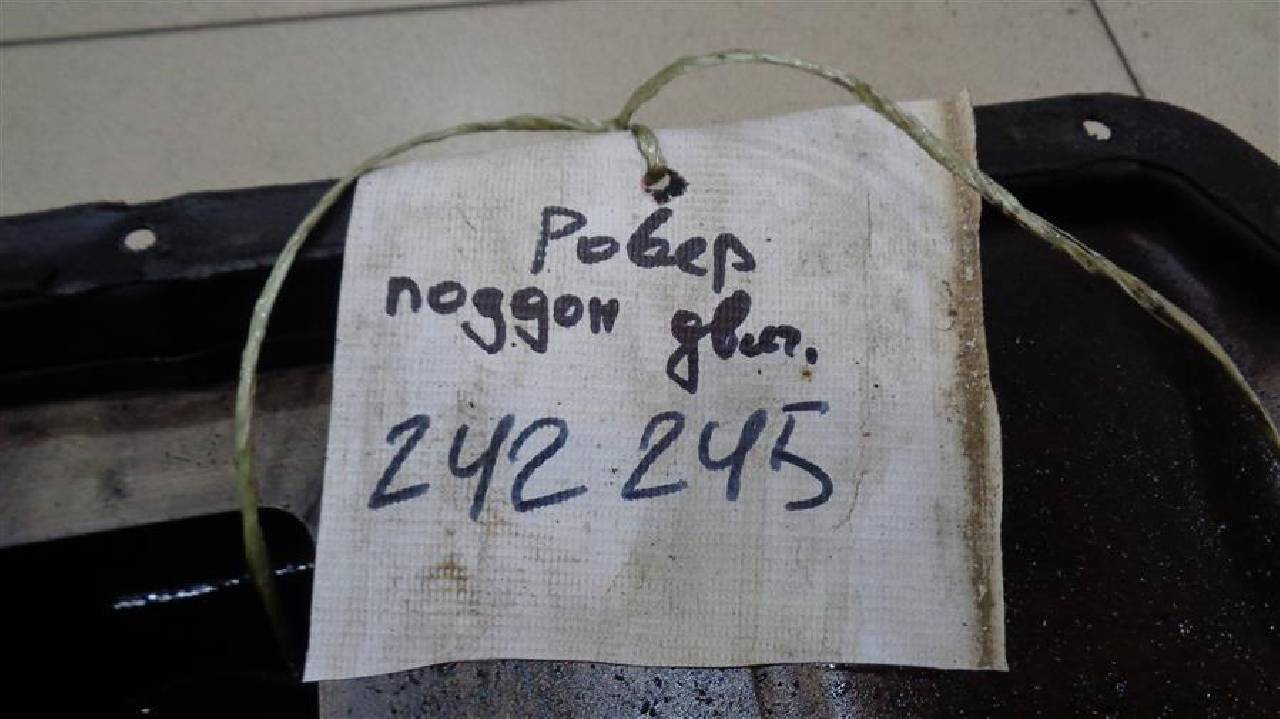 Ровер
поддон двиг.
242 245